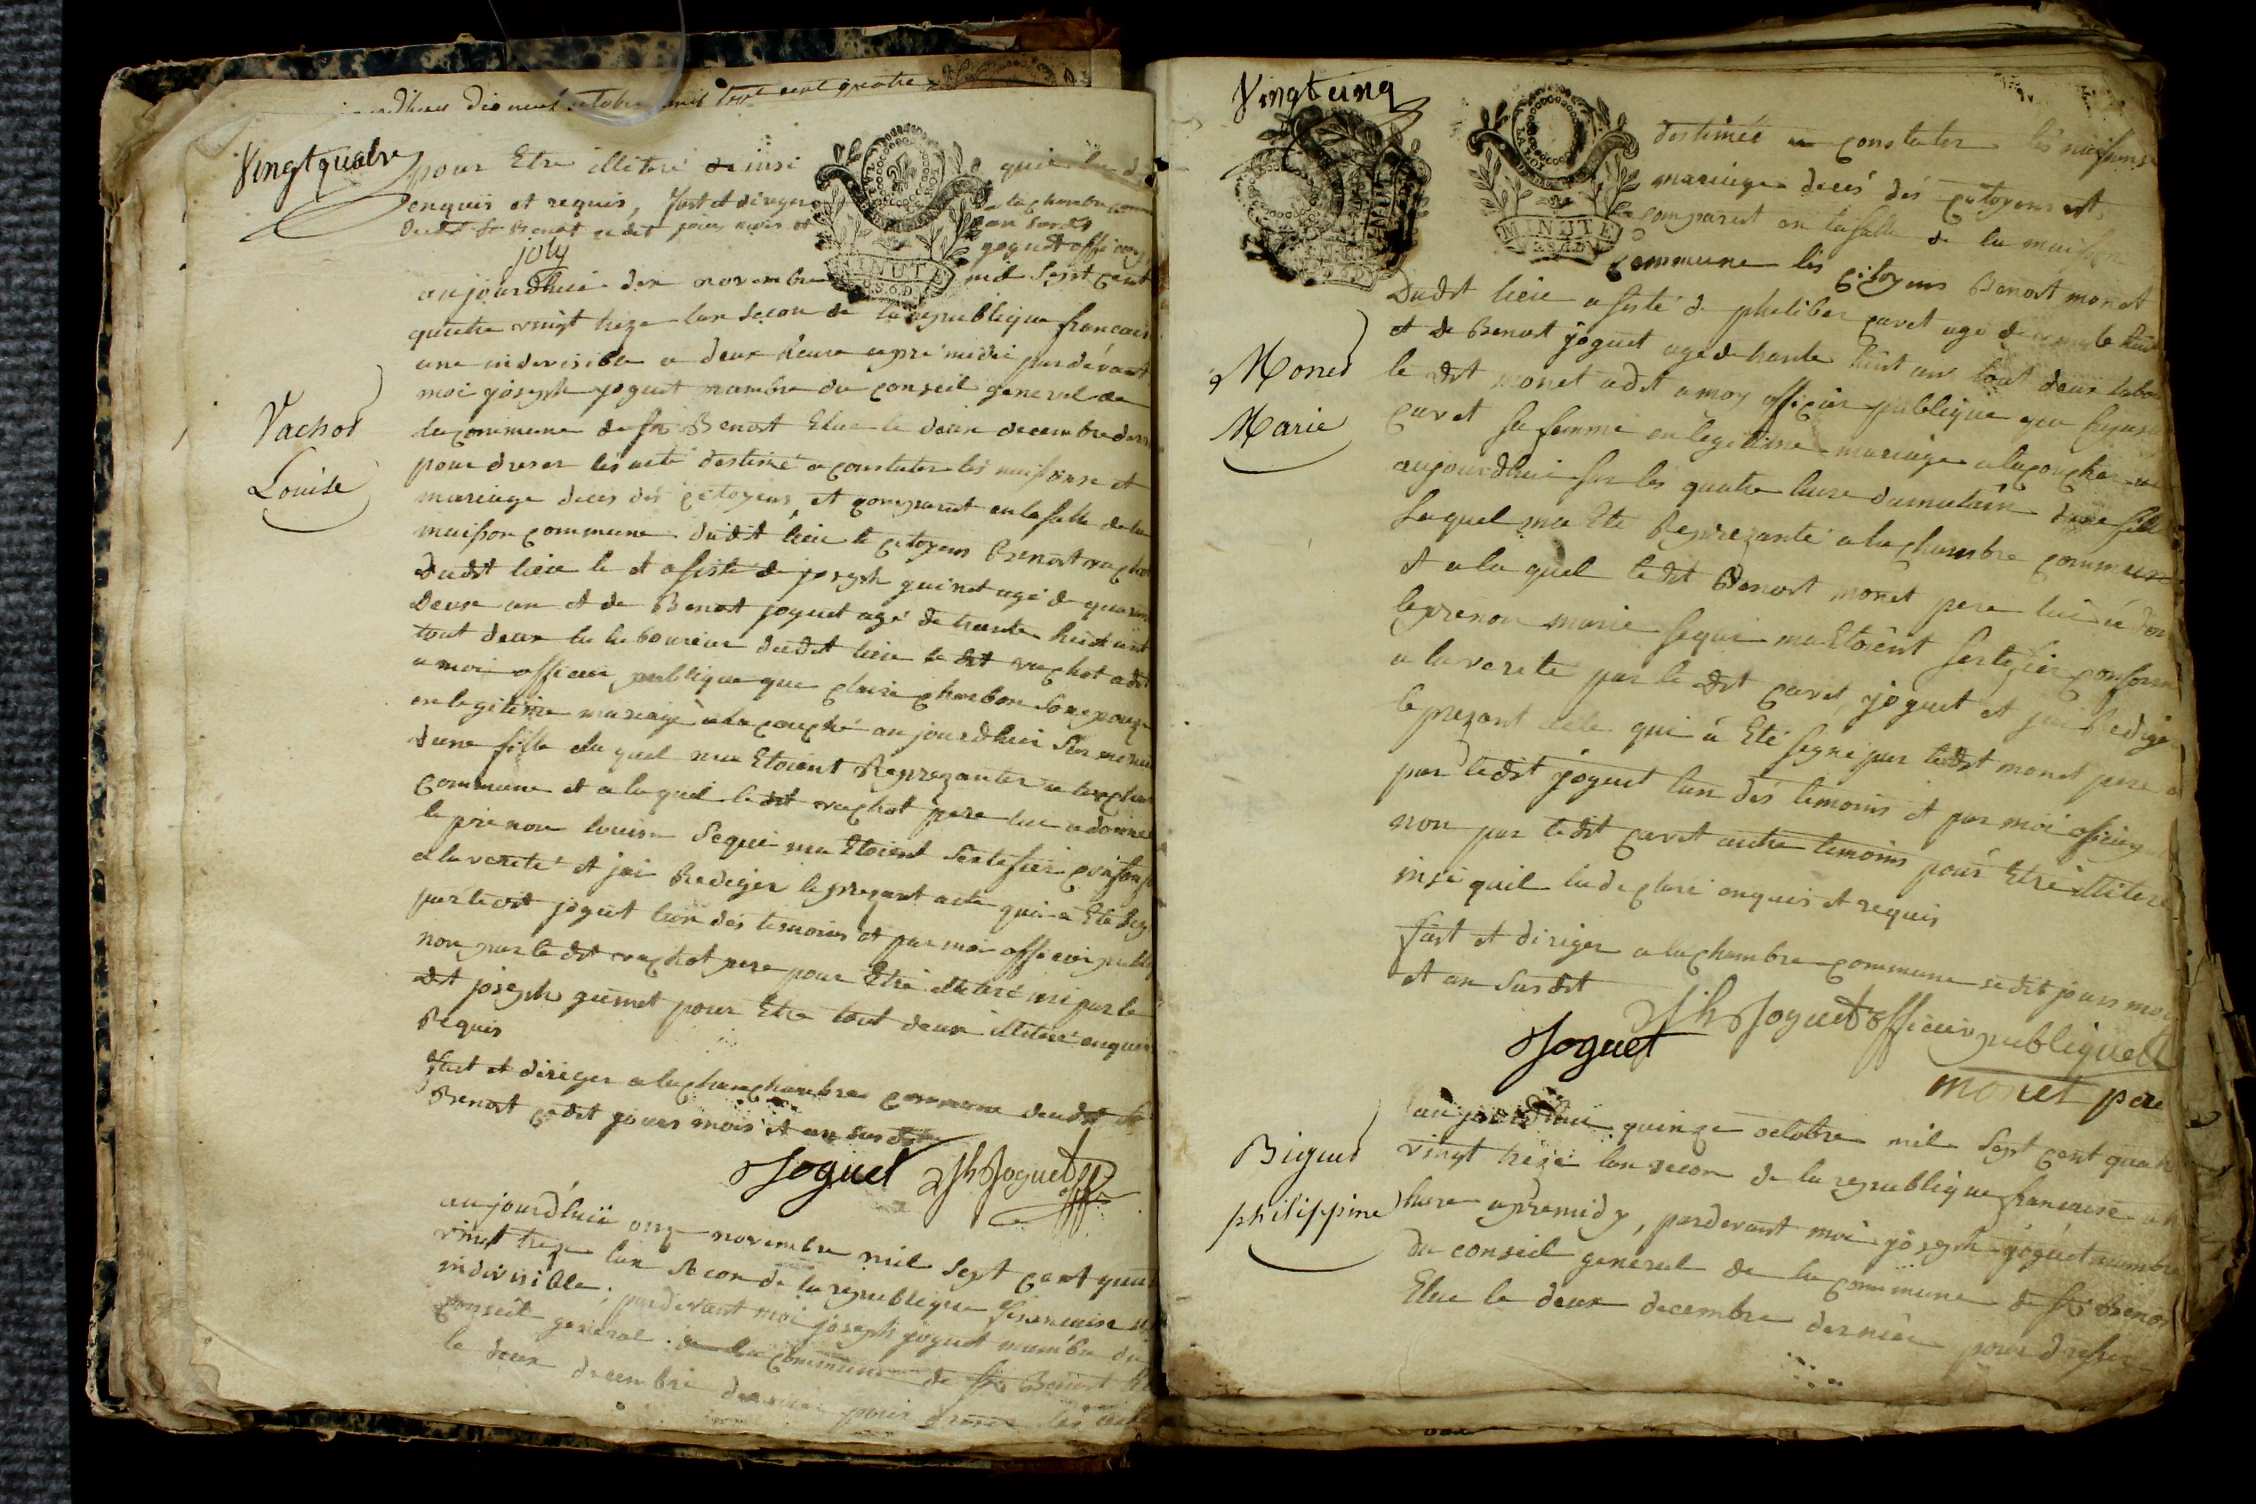 dix neuf octobre mil sept cent quatre
Vingt quatre
pour Etre illiteré insi que
enquis et requis, fast et diriger a la chambre
dudt St Benoit cedit jour mois et an susdt
joly joguet officier
MINUTE
aujourdhui dix novembre mil sept cent
quatre vingt treze lan secon de la republique francaise
une indivisible a deux heure apré midi par devant
moi joseph joguet mambre du conseil general de
la commune de St Benoit Elue le deux decembre dern
pour dreser les acte destiné a constater les naissanse et
mariage deces des citoyens, et comparut en la salle de la
maison commune dudit lieu le citoyens Benoit vachot
Vachot
Louise
dudit lieu le et asisté de joseph guinet agé de quarante
deux an et de Benoit joguet agé de trante huit ant
tout deux laboureur dudit lieu le dit vachot a dit
a moi officier publique que claire charbon son epouze
en legitime mariage a la couché au jourdhui sur
dune fille a la quel ma Etoient Reprezanter a la cham
commune et a la quel le dit vachot pere lui a donné
le prenon louise sequi ma Etoient sertifier conform
a la verité et jai Rediger le prezant acte qui a Eté seg
par le dit joguet lun des temoins et par moi officier publi
non par le dit vachot pere pour Etre illiteré ni par le
dit joseph guinet pour Etre tout deux illiteré enquis
Requis
fast et diriger a la cham chambre commune dudit St
Benoit cedit jours mois et an susdt
Joguet Jph Joguet off
aujourdhui onze novembre mil sept cent quatre
vinst treze lan secon de la republique francaise
indivisible, pardevant moi joseph joguet mambre du
conseil general de la commune de St Benoit
le deux decembre dernier pour dreser les acte
Vingt cinq
MINUTE
destinée a constater les naissanse
mariage decés dés citoyens et
comparut en la salle de la maison
Commune les citoyens Benoit monet
Dudit lieu asisté de philiber cavet agé de
et de Benoit joguet agé de trante huit an tout deux labou
Monet
Marie
le dit monet a dit a moy officier publique que
cavet sa femme en legitime mariage a la couche
aujourdhui sur les quatre heure du matin dune fille
laquel ma Eté Reprezanté a la chambre commune
et a la quel le dit Benoit monet pere lui a don
le prenon marie sequi ma Etoient sertifier conform
a la verité par le dit cavet, joguet et jai Redigé
le prezant acte qui a Eté segné par ledit monet pere
par ledit joguet lun dés temoins et par moi officier
non par ledit cavet autre temoins pour Etre illiteré
insi quil la declaré enquis et requis
fast et diriger a la chambre commune cedit jours mois
et an susdit
Jph Joguet officier publique
Joguet
monet pere
Biguet
philippine
aujourdhui quinze octobre mil sept cent quatre
vingt treze lan secon de la republique francaise
heure apremidy, pardevant moi joseph joguet mambre
du conseil general de la commune de St Benoit
Elue le deux decembre dernier pour dreser